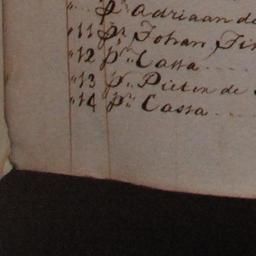 " p.r adriaan de
" 11 p.r Johan
" 12 p.r Cassa
" 13 p.r Pieter de
" 14 p.r Cassa